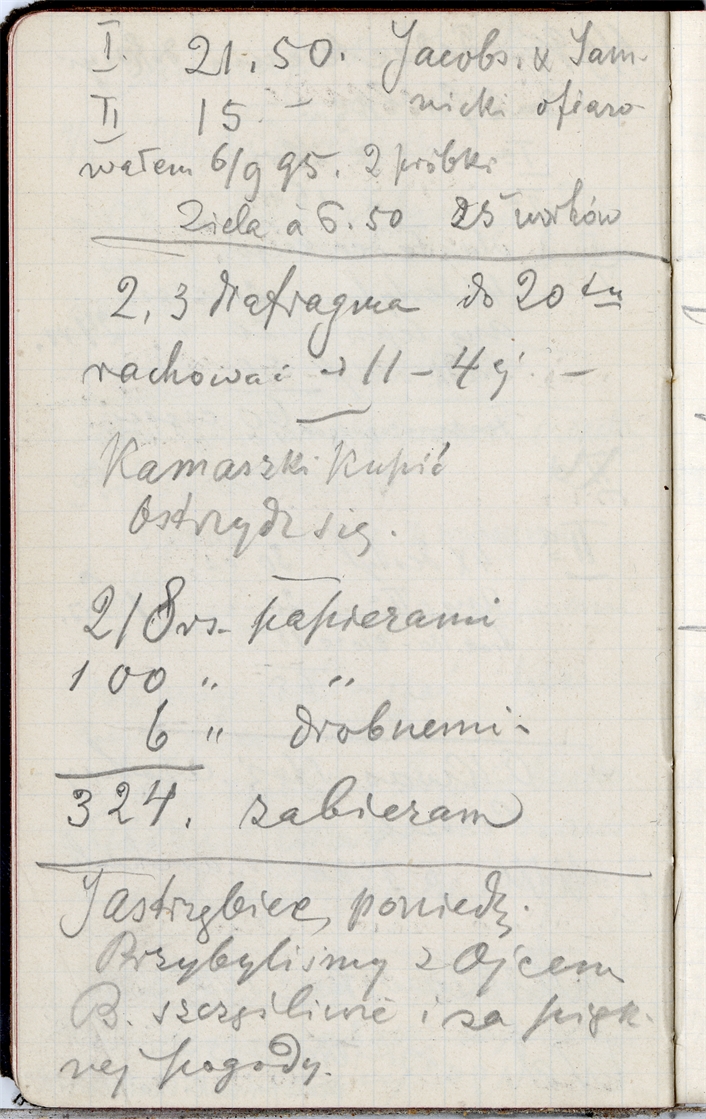 I. 21.50. Jacobs. & Sam-
II 15 – nicki ofiaro-
wałem 6/9 95. 2 próbki
Ziela à 6.50 25 worków
2, 3 diafragma do 20 tu
rachować 11 – 4 ej. –
Kamaszki Kupić
Ostrzydz się.
218 rs. papierami
100 " "
6 " drobnemi.
324. zabieram
Jastrzębiec, poniedz.
Przybyliśmy z Ojcem
B. szczęśliwie i za pięk-
nej pogody.